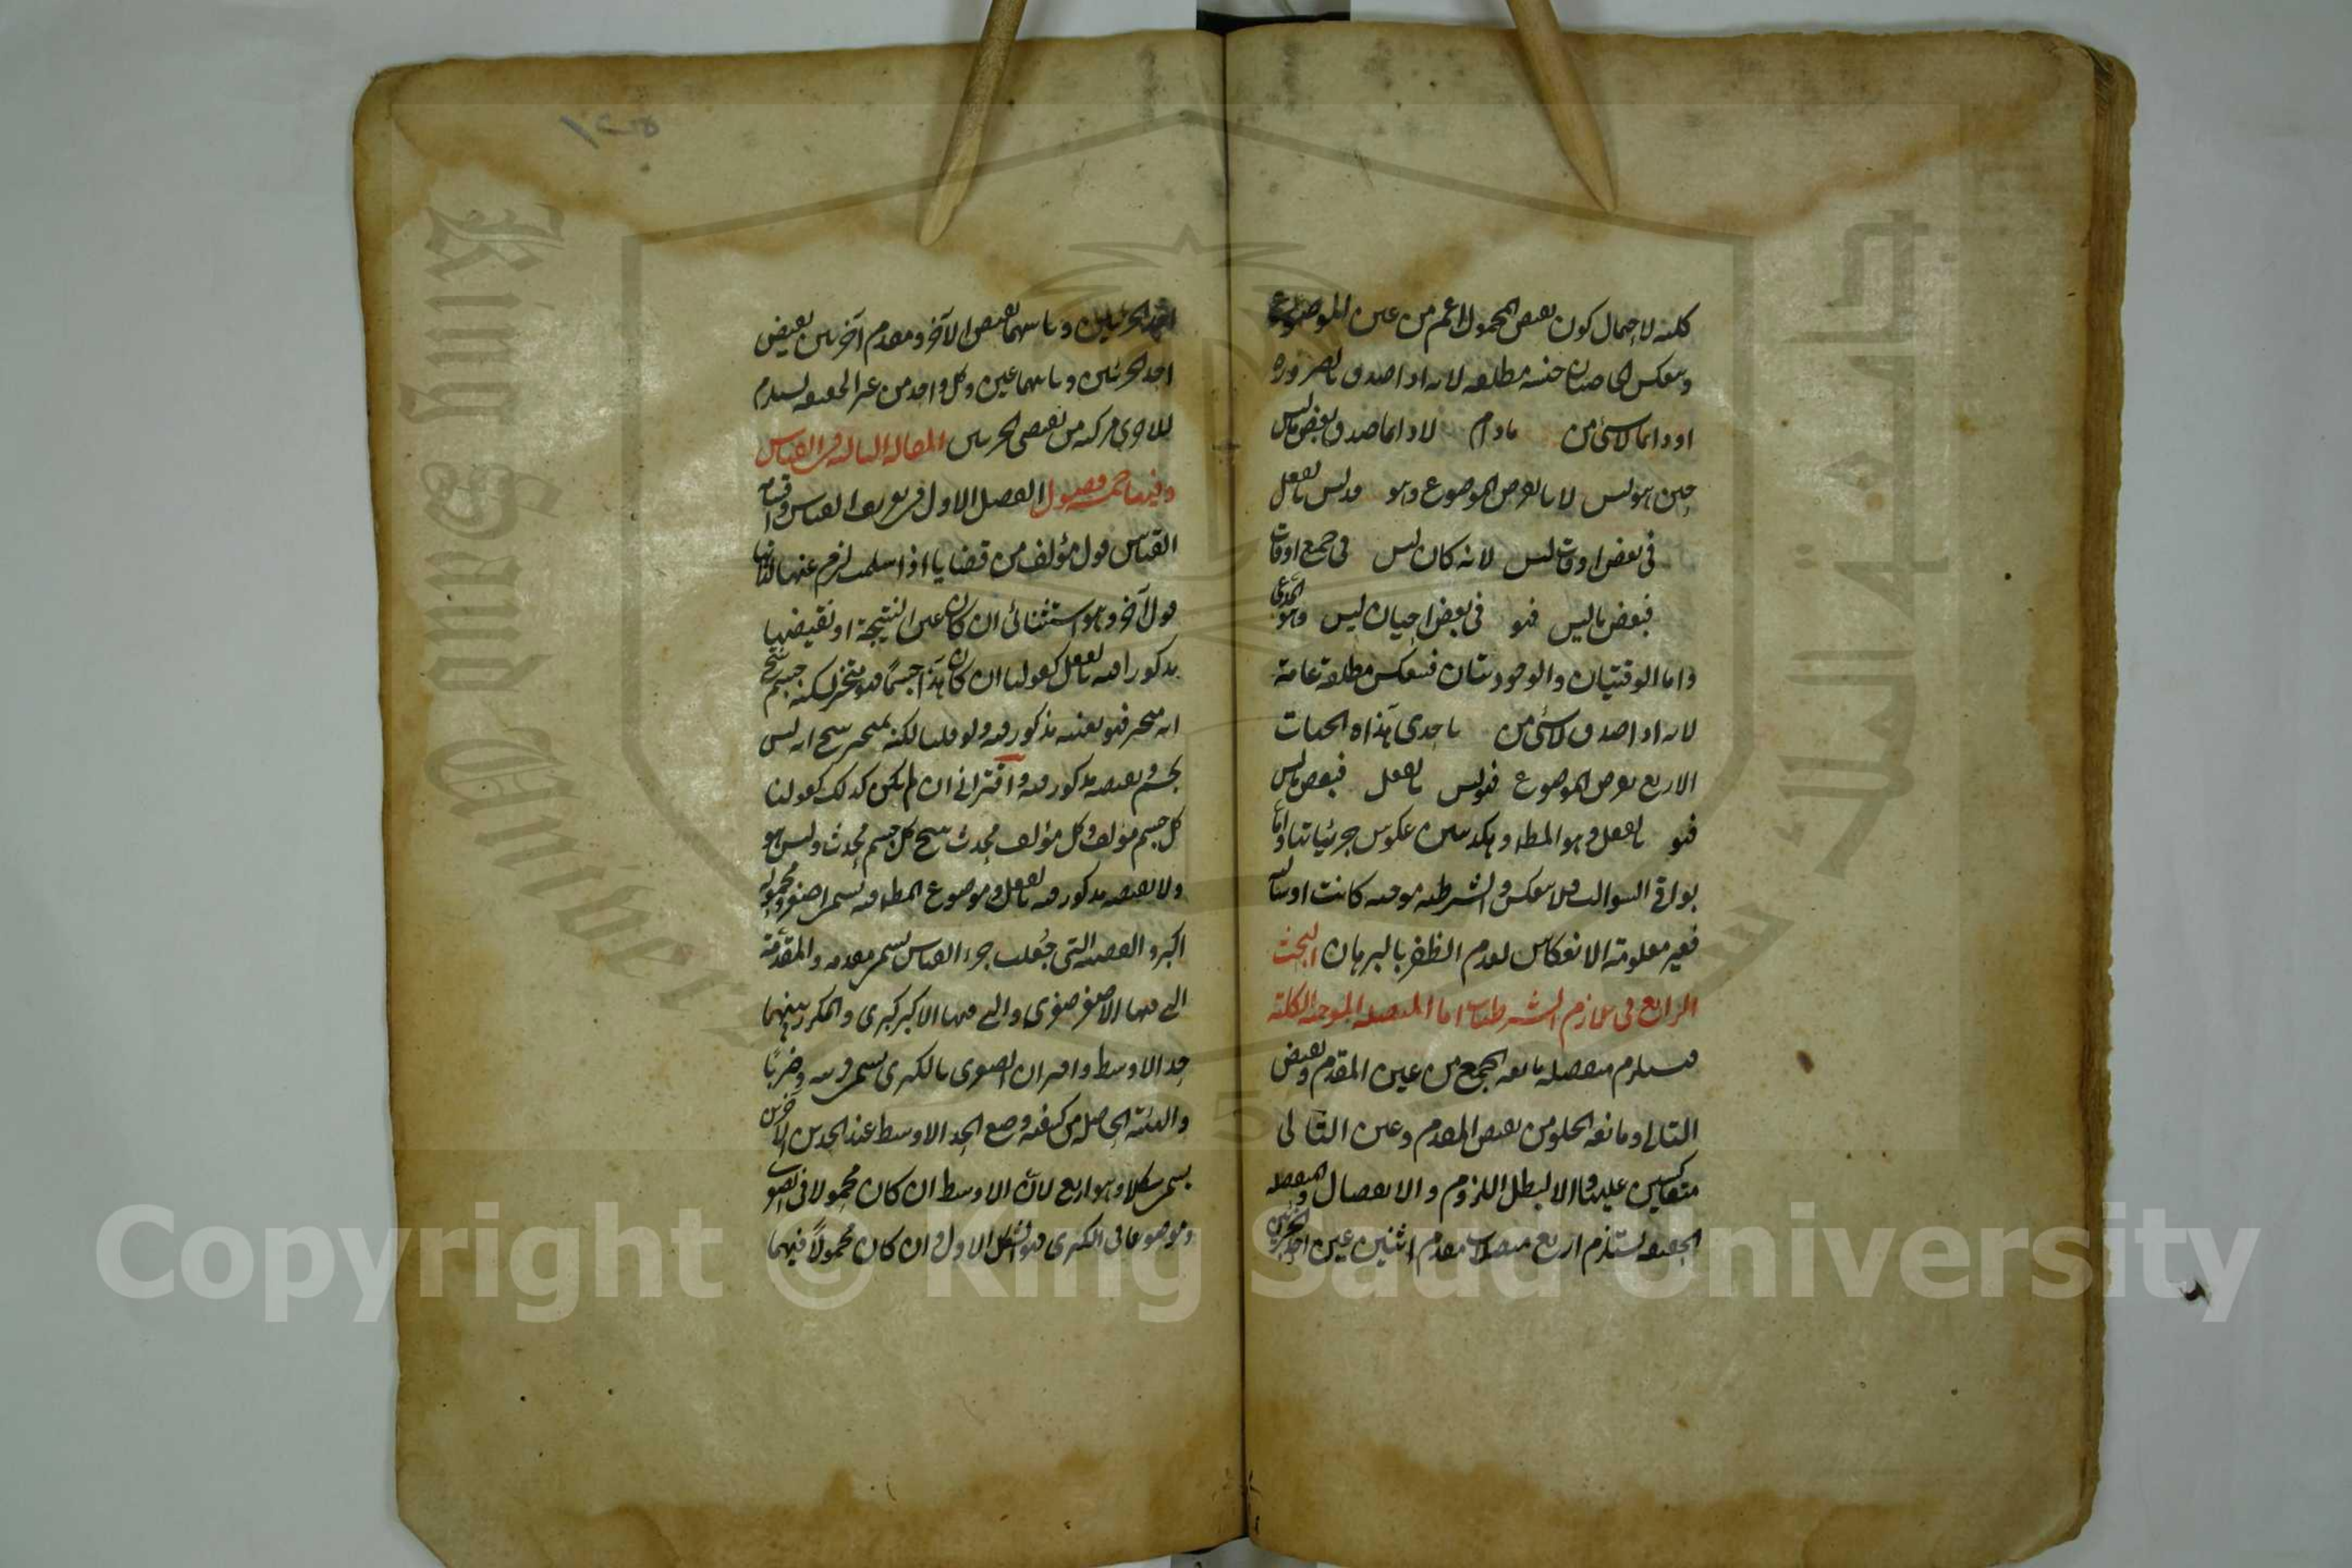 كلية لاحتمال كون نقيض المحمول اعم من عين الموضوع
وينعكس الخاصتان حينية مطلقة لانه اذا صدق بالضرورة
او دائما لا شئ من مادام لا دائما صدق بعض ما ليس
حين هو ليس لانا نفرض الموضوع وهو فدليس بالفعل
في بعض اوقات ليس لانه كان ليس في جميع اوقات
فبعض ما ليس فهو في بعض احيان ليس وهو المدعى
واما الوقتيتان والوجوديتان فينعكس مطلقة عامة
لانه اذا صدق لا شئ من باحدى هذه الجهات
الاربع نفرض الموضوع فهو ليس بالفعل فبعض ما ليس
فهو بالفعل وهو المط وهكذا نبين عكوس جزئياتها واما
بواقى السوالب فلا ينعكس والشرطية موجبة كانت او سالبة
فغير معلومة الانعكاس لعدم الظفر بالبرهان البحث
الرابع في تلازم الشرطيات اما المتصلة الموجبة الكلية
فيستلزم منفصلة مانعة الجمع من عين المقدم ونقيض
التالى او مانعة الخلو من نقيض المقدم وعين التالى
متعاكسين عليها والا لبطل اللزوم والانفصال والمنفصلة
الحقيقية يستلزم اربع متصلات مقدم اثنين عين احد الجزئين
احد الجزئين وتاليهما نقيض الآخر ومقدم آخرين نقيض
احد الجزئين وتاليهما عين وكل واحد من غير الحقيقية يستلزم
للاخرى مركبة من نقيضى الجزئين المقالة الثالثة في القياس
وفيها خمسة فصول الفصل الاول في تعريف القياس واقسامه
القياس قول مؤلف من قضايا اذا سلمت لزم عنها لذاتها
قول آخر وهو استثنائى ان كان عين النتيجة او نقيضها
مذكورا فيه بالفعل كقولنا ان كان هذا جسما فهو متحيز لكنه جسم ينتج
انه متحيز فهو بعينه مذكور فيه ولو قلنا لكنه ليس بمتحيز ينتج انه ليس
بجسم ونقيضه مذكور فيه واقترانى ان لم يكن كذلك كقولنا
كل جسم مؤلف وكل مؤلف محدث ينتج كل جسم محدث وليس هو
ولا نقيضه مذكور فيه بالفعل وموضوع المط فيه يسمى اصغر ومحموله
اكبر والقضية التى جعلت جزء القياس يسمى مقدمة والمقدمة
التى فيها الاصغر صغرى والتى فيها الاكبر كبرى والمكرر بينهما
حد الاوسط واقتران الصغرى بالكبرى يسمى قرينة وضربا
والهيئة الحاصلة من كيفية وضع الحد الاوسط عند الحدين الآخرين
يسمى شكلا وهو اربع لان الاوسط ان كان محمولا في الصغرى
وموضوعا في الكبرى فهو الشكل الاول وان كان محمولا فيهما
Copyright © King Saud University